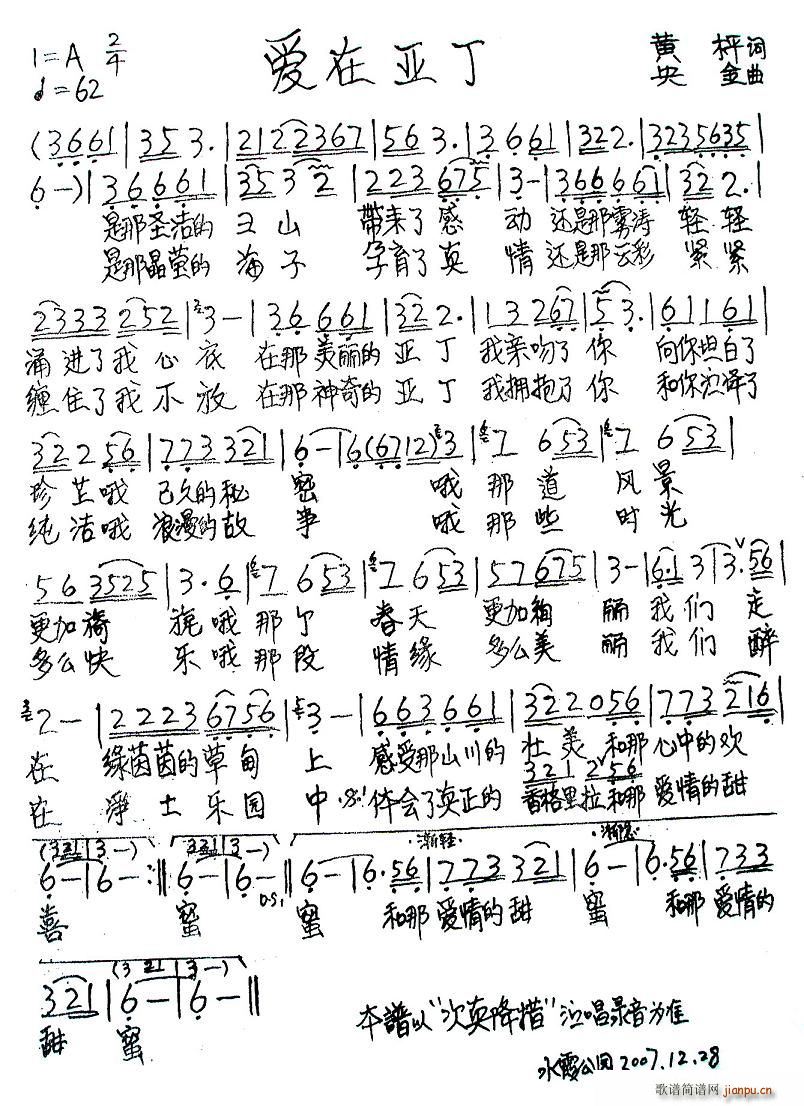 1=A 2/4 爱在亚丁 黄枰词
♩=62 央金曲
(3661|353.|2122 2367|563.|3 661|322.|3235 6535|
6-)|36661|353 2|223 675|3-|366661|322.|
是那圣洁的 山 带来了感 动 还是那雾涛 轻轻
是那晶莹的 海子 孕育了真 情 还是那云彩 紧紧
2333 252|3-|36 661|322.|13267|53.|611 61|
涌进了我心底 在那美丽的亚丁 我亲吻了你 向你坦白了
缠住了我不放 在那神奇的亚丁 我拥抱了你 和你演绎了
322 56|773 321|6-|6(67 12)3|7 653|7 653|
珍芷哦 已久的秘 密 哦 那道 风景
纯洁哦 浪漫的故 事 哦 那些 时光
56 3525|3.6|7 653|7 653|57 675|3-|6.1 3|3. 56|
更加旖 旎哦那个 春天 更加绚 丽 我们 走
多么快 乐哦那段 情缘 多么美 丽 我们 醉
2-|2223 6756|3-|663 661|322 056|773 216|
在 绿茵茵的草甸 上 感受那山川的 壮美 和那心中的欢
321 2 56
在 净土乐园 中 体会了真正的 香格里拉和那 爱情的甜
(321|3-) (321|3-) 渐轻 渐轻
6-|6-:‖6-|6-‖6-|6.56|773 321|6-|6.56|733
D.S.
喜 蜜 蜜 和那 爱情的甜 蜜 和那 爱情的
(3 21|3-)
321|6-|6-‖
甜 蜜
本谱以“次真降措”演唱录音为准
水霞公园2007.12.28
歌谱简谱网
jianpu.cn